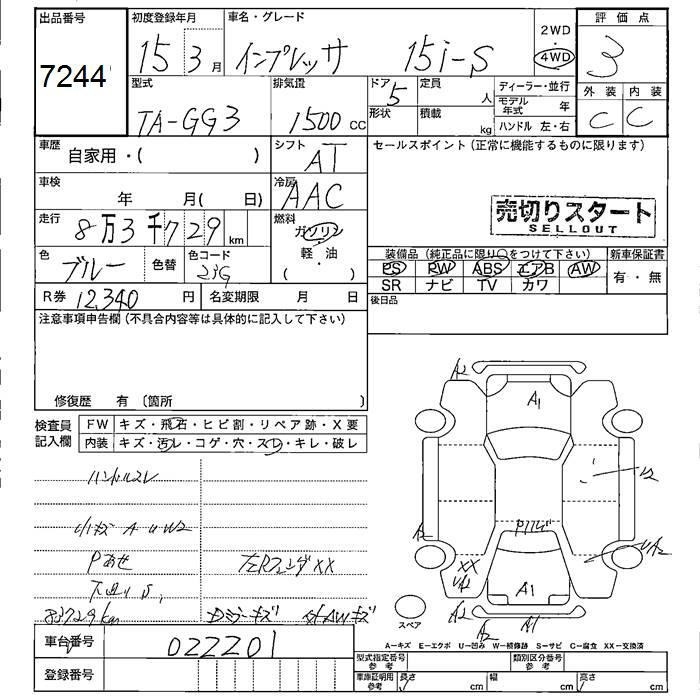 出品番号
7244
初度登録年月
15 3月
車名・グレード
インプレッサ 15i-S
2WD
4WD
評価点
3
外装 内装
C C
型式
TA-GG3
排気量
1500 cc
ドア
5
形状
定員
人
積載
kg
ディーラー・並行
モデル年式 年
ハンドル 左・右
車歴
自家用・( )
シフト
AT
車検
年 月( 日)
冷房
AAC
走行
8万3千729 km
燃料
ガソリン
軽・油
( )
色
ブルー
色替
色コード
23G
R券 12,340 円
名変期限 月 日
セールスポイント(正常に機能するものに限ります)
売切りスタート
SELLOUT
装備品(純正品に限り○をつけて下さい)
新車保証書
PS PW ABS エアB AW
SR ナビ TV カワ
有・無
後日品
注意事項申告欄(不具合内容等は具体的に記入して下さい)
修復歴 有 〔箇所 〕
検査員記入欄
FW キズ・飛石・ヒビ割・リペア跡・X要
内装 キズ・汚レ・コゲ・穴・スレ・キレ・破レ
ハンドルスレ
小キズ A U W2
Pあせ
左Rフェンダ XX
83729km
Dミラーキズ
A2
A1
U2
A2
Pハゲ
UA2
XX
UA2
A1
A2
A1
A2
スペア
A-キズ E-エクボ U-凹み W-補修跡 S-サビ C-腐食 XX-交換済
車台番号 022201
登録番号
型式指定番号
参考
類別区分番号
参考
車庫証明用
参考
長さ cm
幅 cm
高さ cm